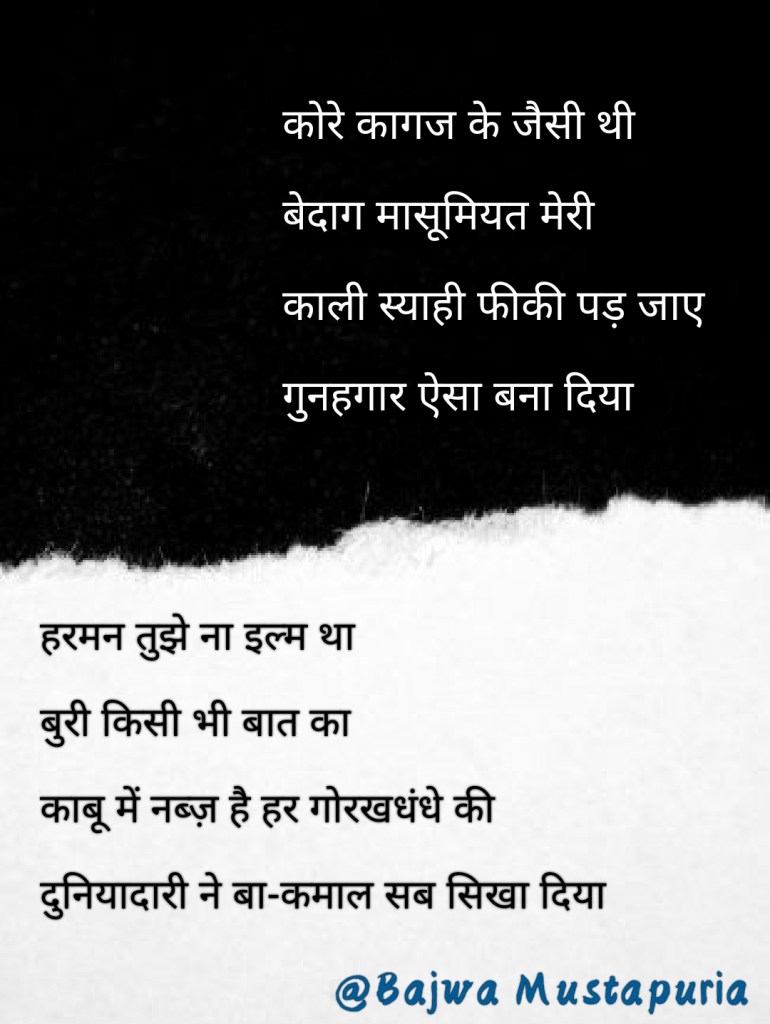 कोरे कागज के जैसी थी
बेदाग मासूमियत मेरी
काली स्याही फीकी पड़ जाए
गुनहगार ऐसा बना दिया
हरमन तुझे ना इल्म था
बुरी किसी भी बात का
काबू में नब्ज़ है हर गोरखधंधे की
दुनियादारी ने बा-कमाल सब सिखा दिया
@Bajwa Mustapuria